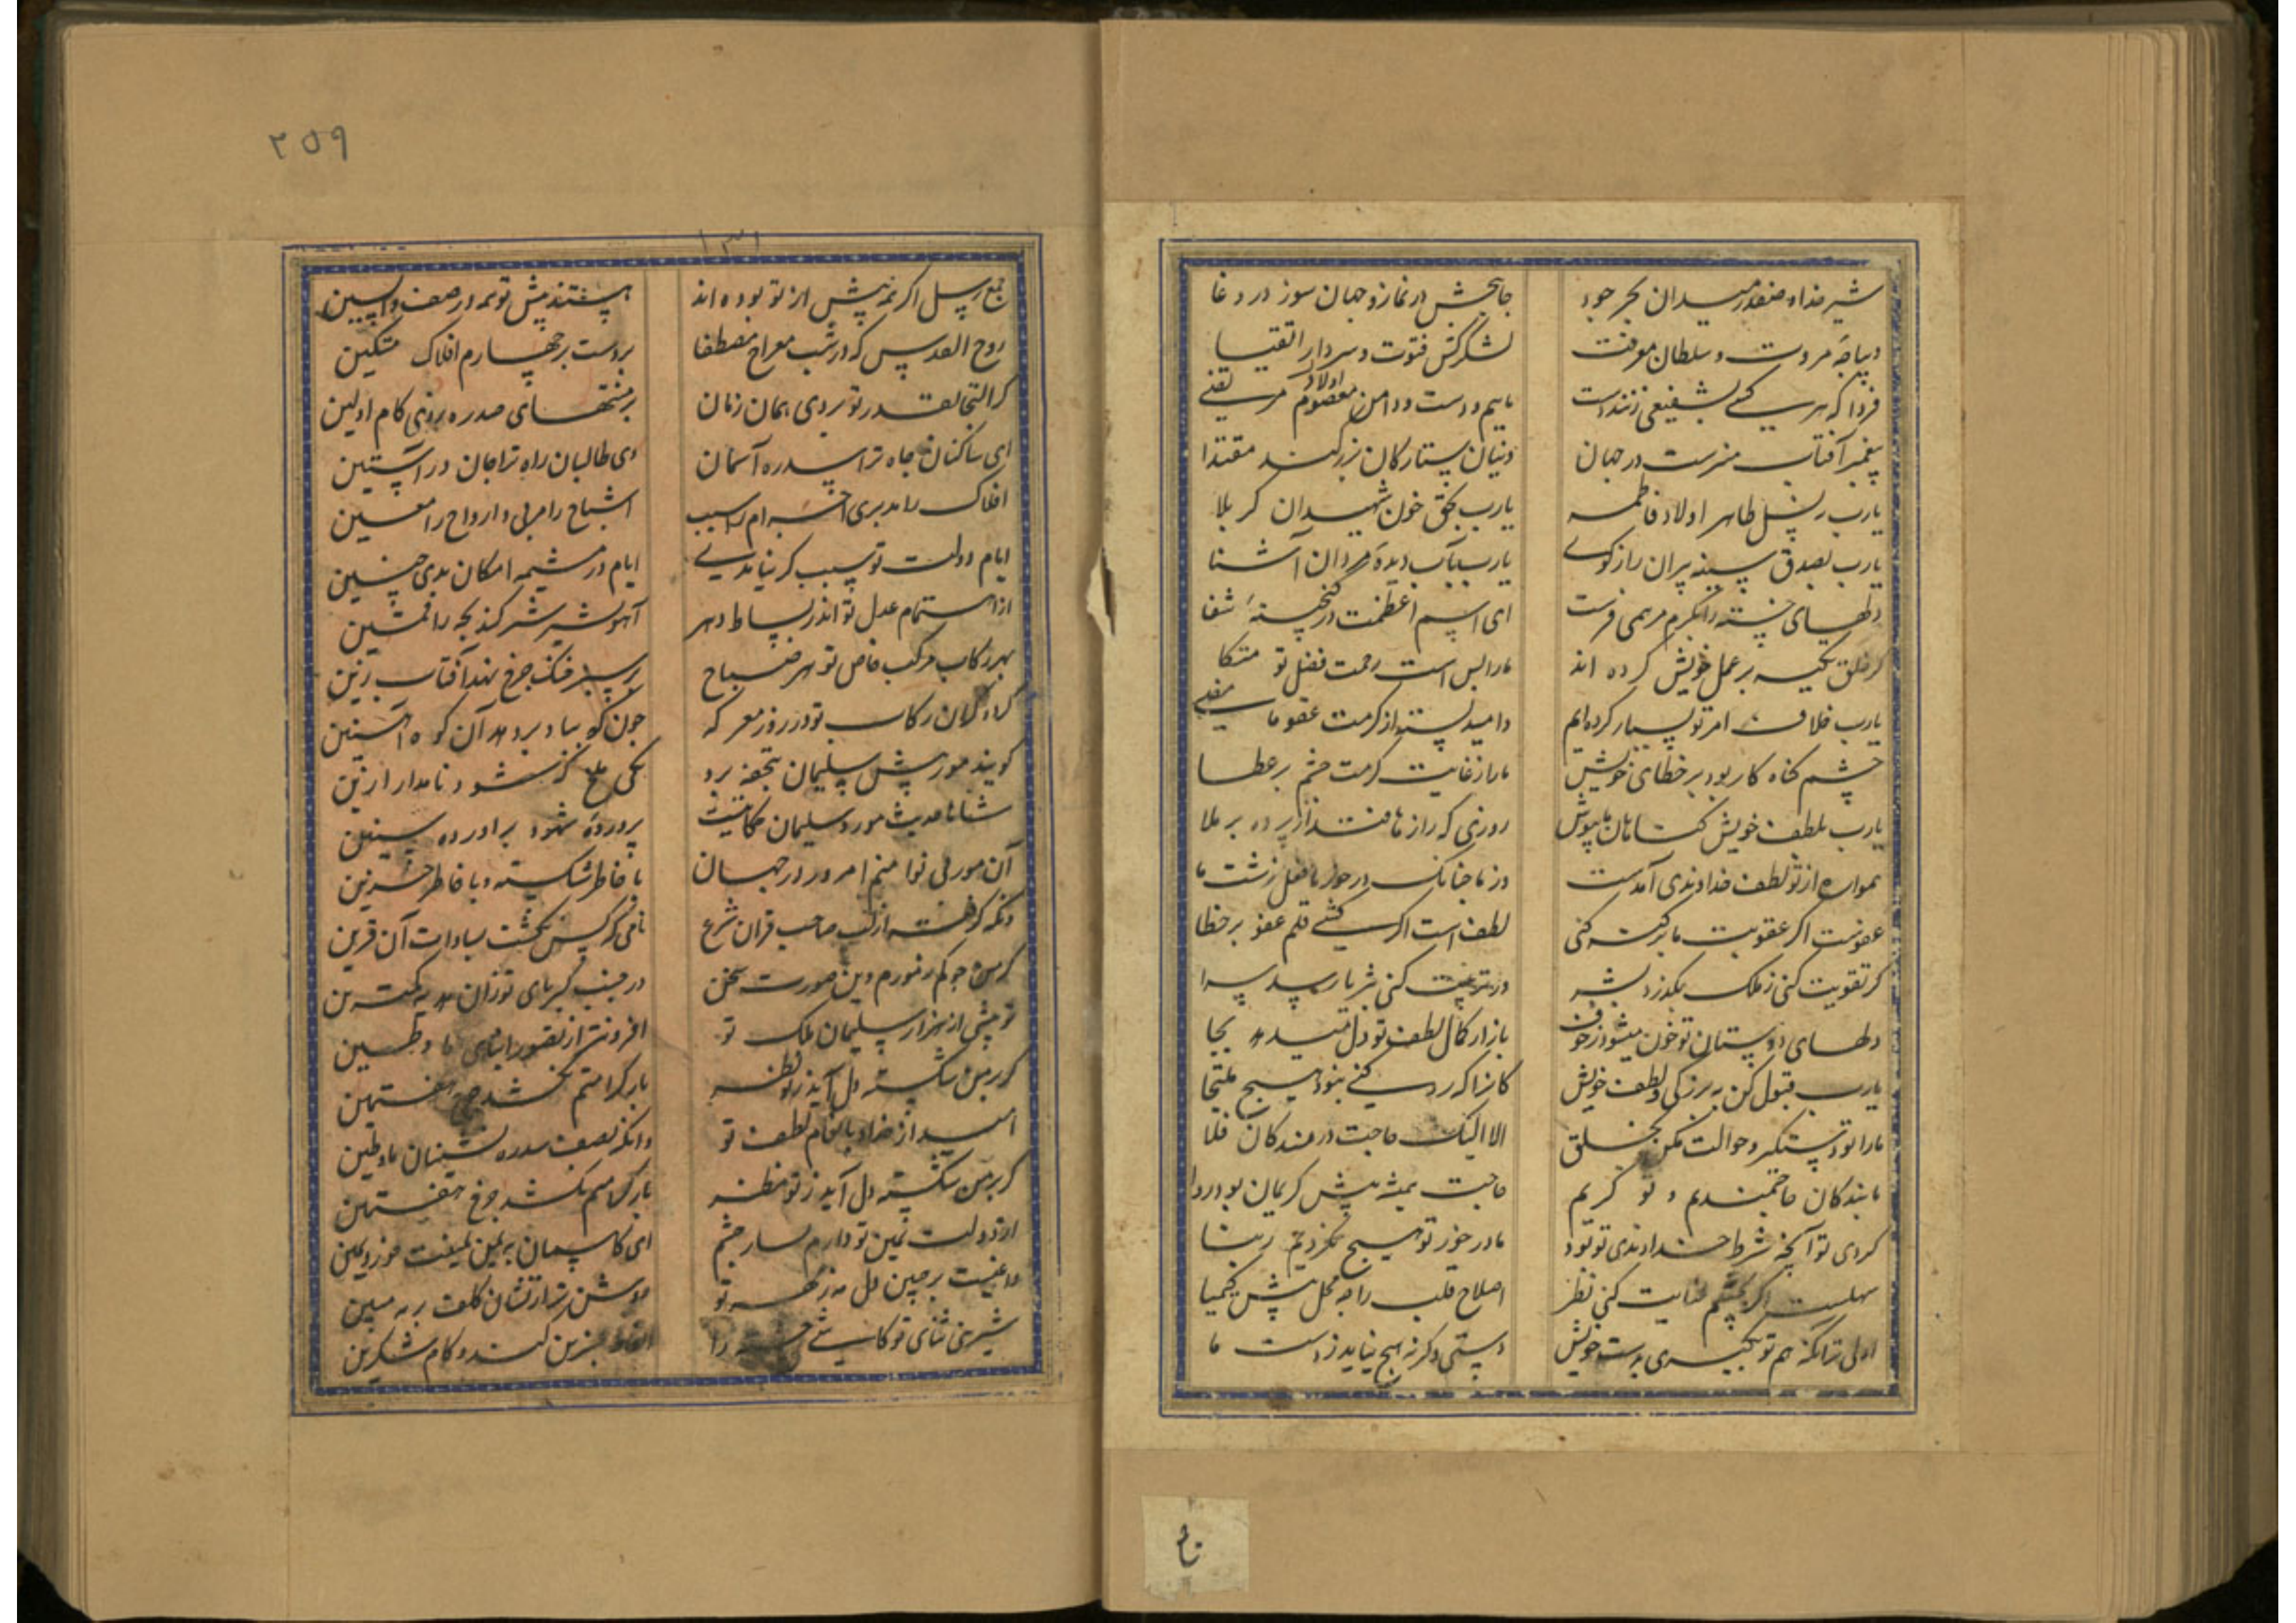 شیر خدا و صفدر میدان بحر جود
جان‌بخش در نماز و جهان سوز در دغا
دیباچهٔ مروت و سلطان معرفت
لشکرکش فتوت و سردار اتقیا
فردا که هر کسی بشفیعی زنند دست
ماییم و دست و دامن اولاد معصوم مرتضی
پیغمبر آفتاب منیرست در جهان
دینان ستارگان بزرگند مقتدا
یارب بنسل طاهر اولاد فاطمه
یارب بحق خون شهیدان کربلا
یارب بصدق سینه پیران راز کوی
یارب بآب دیدهٔ مردان آشنا
دلهای خسته را بکرم مرهمی فرست
ای اسم اعظمت در گنجینهٔ شفا
گر خلق تکیه بر عمل خویش کرده اند
ما را بس است رحمت فضل تو متکا
یارب خلاف امر تو بسیار کرده‌ایم
و امید بسته از کرمت عفو ما مضی
چشم گناه کار بود بر خطای خویش
ما را ز غایت کرمت چشم بر عطا
یارب بلطف خویش گناهان ما بپوش
روزی که رازها فتد از پرده بر ملا
همواره از تو لطف خداوندی آمدست
وز ما چنانک در خور ما فعل زشت ما
عفوست اگر عقوبت ما برکه کنی
لطف است اگر کشی قلم عفو بر خطا
گر تقویت کنی ز ملک بگذرد بشر
ور تربیت کنی بثریا رسد سرا
دلهای دوستان تو خون میشود ز خوف
باز از کمال لطف تو دل میدهد بجا
یارب قبول کن به بزرگی و لطف خویش
کانرا که رد کنی نبود هیچ ملتجا
ما را تو دستگیر و حوالت مکن بخلق
الا الیک حاجت درمندگان فلا
ما بندگان حاجتمندیم و تو کریم
حاجت همیشه پیش کریمان بود روا
کردی تو آنچه شرط خداوندی تو بود
ما در خور تو هیچ نکردیم ربنا
سهلست اگر بچشم عنایت کنی نظر
اصلاح قلب را چه محل پیش کیمیا
اولی تر آنکه هم تو بگیری بدست خویش
دستی و گرنه هیچ نیاید ز دست ما
تا
۲۵۹
۱۳۱
جمع رسل اگر همه پیش از تو بوده اند
هستند پیش تو همه در صف واپسین
روح القدس که در شب معراج مصطفا
بر دست بر چهارم افلاک متکین
گر التجا بقدر تو بردی همان زمان
بر منتهای صدره بدی کام اولین
ای ساکنان جاه ترا سدره آسمان
وی طالبان راه ترا جان در آستین
افلاک را مدبری اجرام را سبب
اشباح را مربی و ارواح را معین
ایام دولت تو سبب گر نیامدی
ایام در مشیمه امکان بدی جنین
از اهتمام عدل تو اندر بساط دهر
آهو بشیر شیر کند بچه را سمین
بهر رکاب مرکب خاص تو هر صباح
بر سبز خنگ چرخ نهد آفتاب زین
گاو گران رکاب تو در روز معرکه
چون کوه باد برد هد آن کوه آهنین
گویند مور پیش سلیمان بتحفه برد
شاها حدیث مور و سلیمان حکایتیست
پرورده شهود برآورده سنین
آن مور بی نوا منم امروز در جهان
با خاطر شکسته و با خاطر حزین
تو بیشی از هزار سلیمان ملک تو
افزونتر از تصور ابنای ما و طین
گر بر من شکسته دل آید ز تو نظر
بار کرامتم بکشد چرخ هفتمین
امید از خدا و بانعام لطف تو
گر بر من شکسته دل آید ز تو نظر
بار کرامتم بکشد چرخ هفتمین
از دولت ثمین تو دارم یسار چشم
شیرینی ثنای تو کاشی خسته را